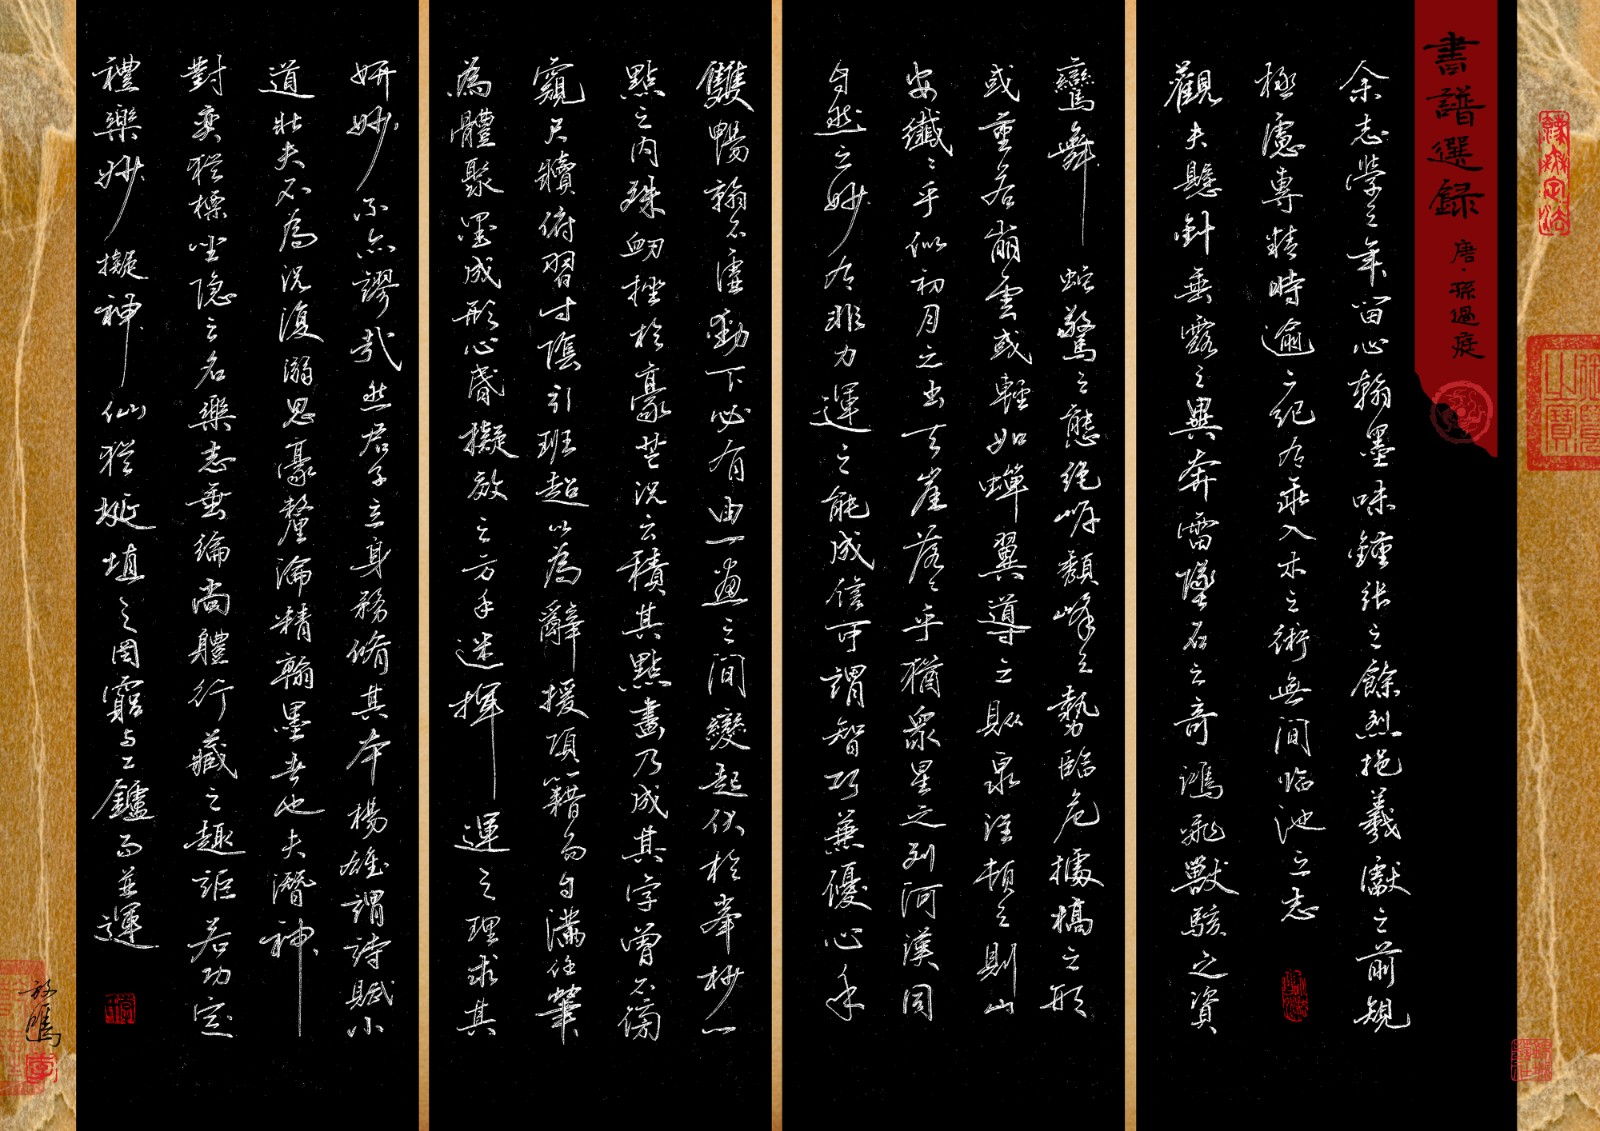 書譜選録
唐·孫過庭
余志學之年留心翰墨味鍾張之餘烈挹羲獻之前規
極慮專精時逾二紀有乖入木之術無間臨池之志
觀夫懸針垂露之異奔雷墜石之奇鴻飛獸駭之資
鸞舞蛇驚之態絕岸頹峰之勢臨危據槁之形
或重若崩雲或輕如蟬翼導之則泉注頓之則山
安纖纖乎似初月之出天崖落落乎猶衆星之列河漢同
自然之妙有非力運之能成信可謂智巧兼優心手
雙暢翰不虛動下必有由一畫之間變起伏於峯杪一
點之内殊衄挫於豪芒況云積其點畫乃成其字曾不傍
窺尺牘俯習寸陰引班超以為辭援項籍而自滿任筆
為體聚墨成形心昏擬效之方手迷揮運之理求其
妍妙不亦謬哉然君子立身務脩其本楊雄謂詩賦小
道壯夫不為況復溺思豪釐淪精翰墨者也夫潛神
對奕猶標坐隐之名樂志垂綸尚體行藏之趣詎若功定
禮樂妙擬神仙猶埏埴之罔窮与工鑪而並運